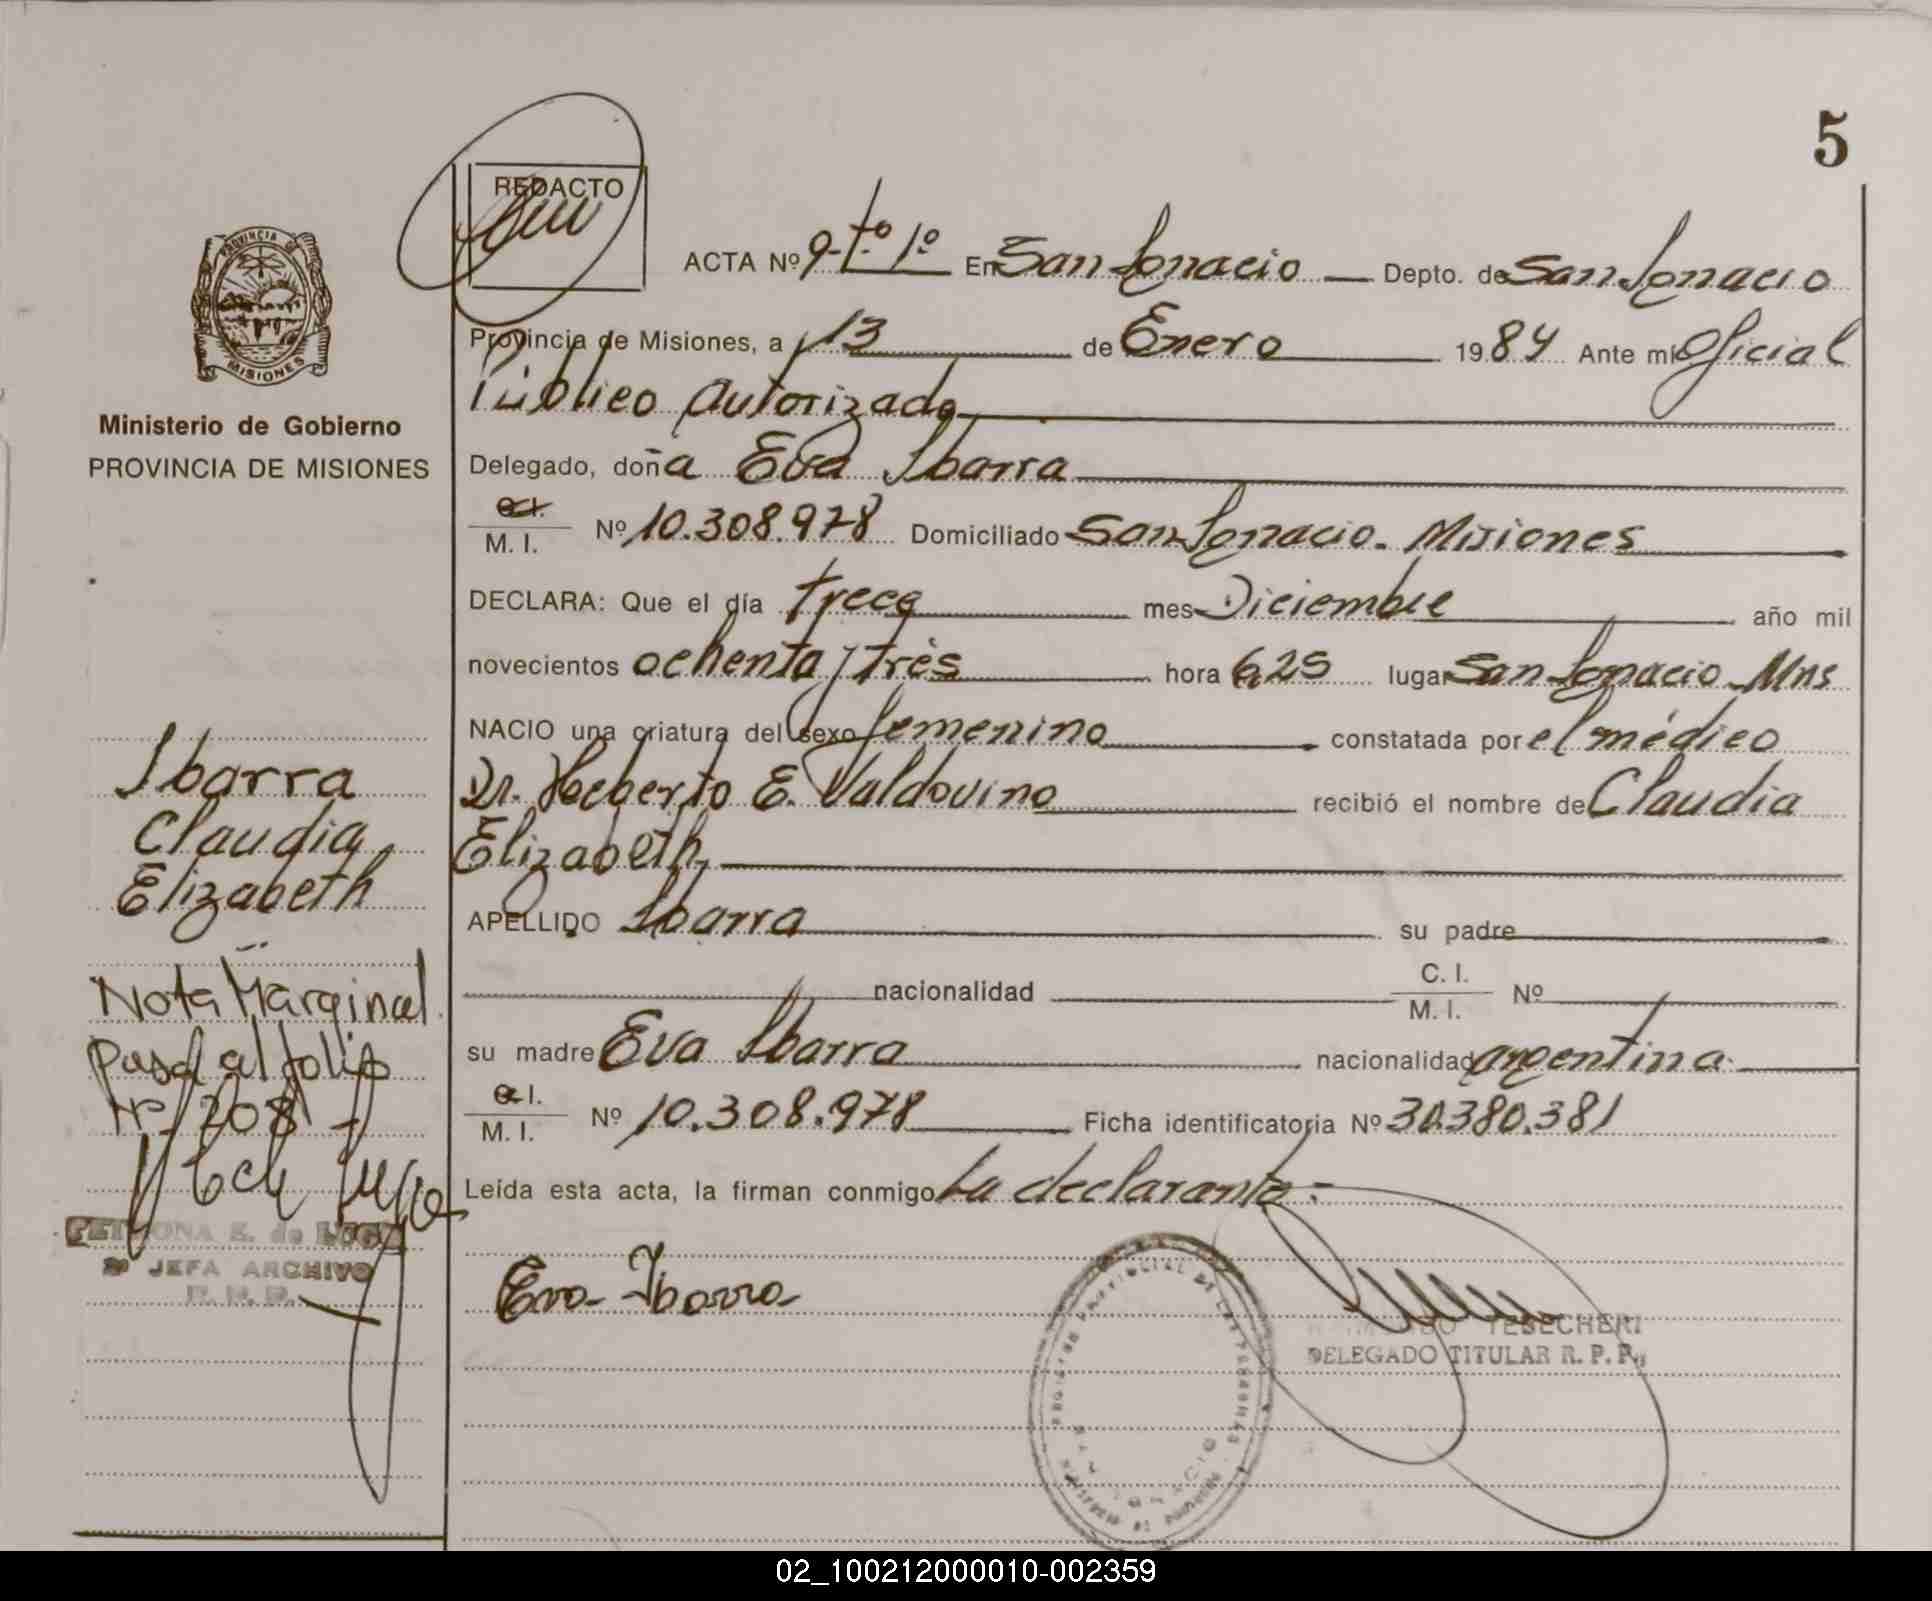 5
REDACTO
ACTA Nº 9-tº 1º En San Ignacio Depto. de San Ignacio
Provincia de Misiones, a 13 de Enero 1984 Ante mi Oficial
Público Autorizado
Delegado, doña Eva Ibarra
C.I.
M. I. Nº 10.308.978 Domiciliado San Ignacio. Misiones
DECLARA: Que el día trece mes Diciembre año mil
novecientos ochenta y tres hora 6,25 lugar San Ignacio Mns
NACIO una criatura del sexo femenino constatada por el médico
Dr. Heberto E. Valdovino recibió el nombre de Claudia
Elizabeth
APELLIDO Ibarra su padre
nacionalidad C. I.
M. I. Nº
su madre Eva Ibarra nacionalidad argentina
C.I.
M. I. Nº 10.308.978 Ficha identificatoria Nº 30.380.381
Leída esta acta, la firman conmigo La declarante:-
Eva Ibarra
TEBECHERI
DELEGADO TITULAR R. P. P.
PROVINCIA DE
MISIONES
Ministerio de Gobierno
PROVINCIA DE MISIONES
Ibarra
Claudia
Elizabeth
Nota Marginal
Pasa al folio
nº 208
E. de
JEFA ARCHIVO
R. P. P.
02_100212000010-002359